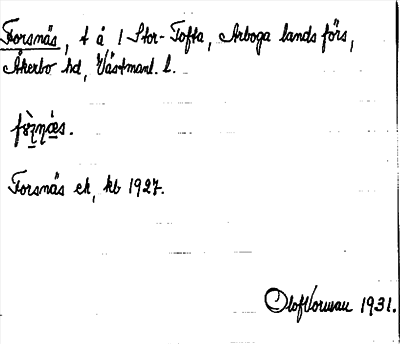 Forsnäs, t å 1 Stor-Tofta, Arboga lands förs,
Åkerbo hd, Västmanl. l.
Forsnäs ek, kb 1927.
Olof 1931.